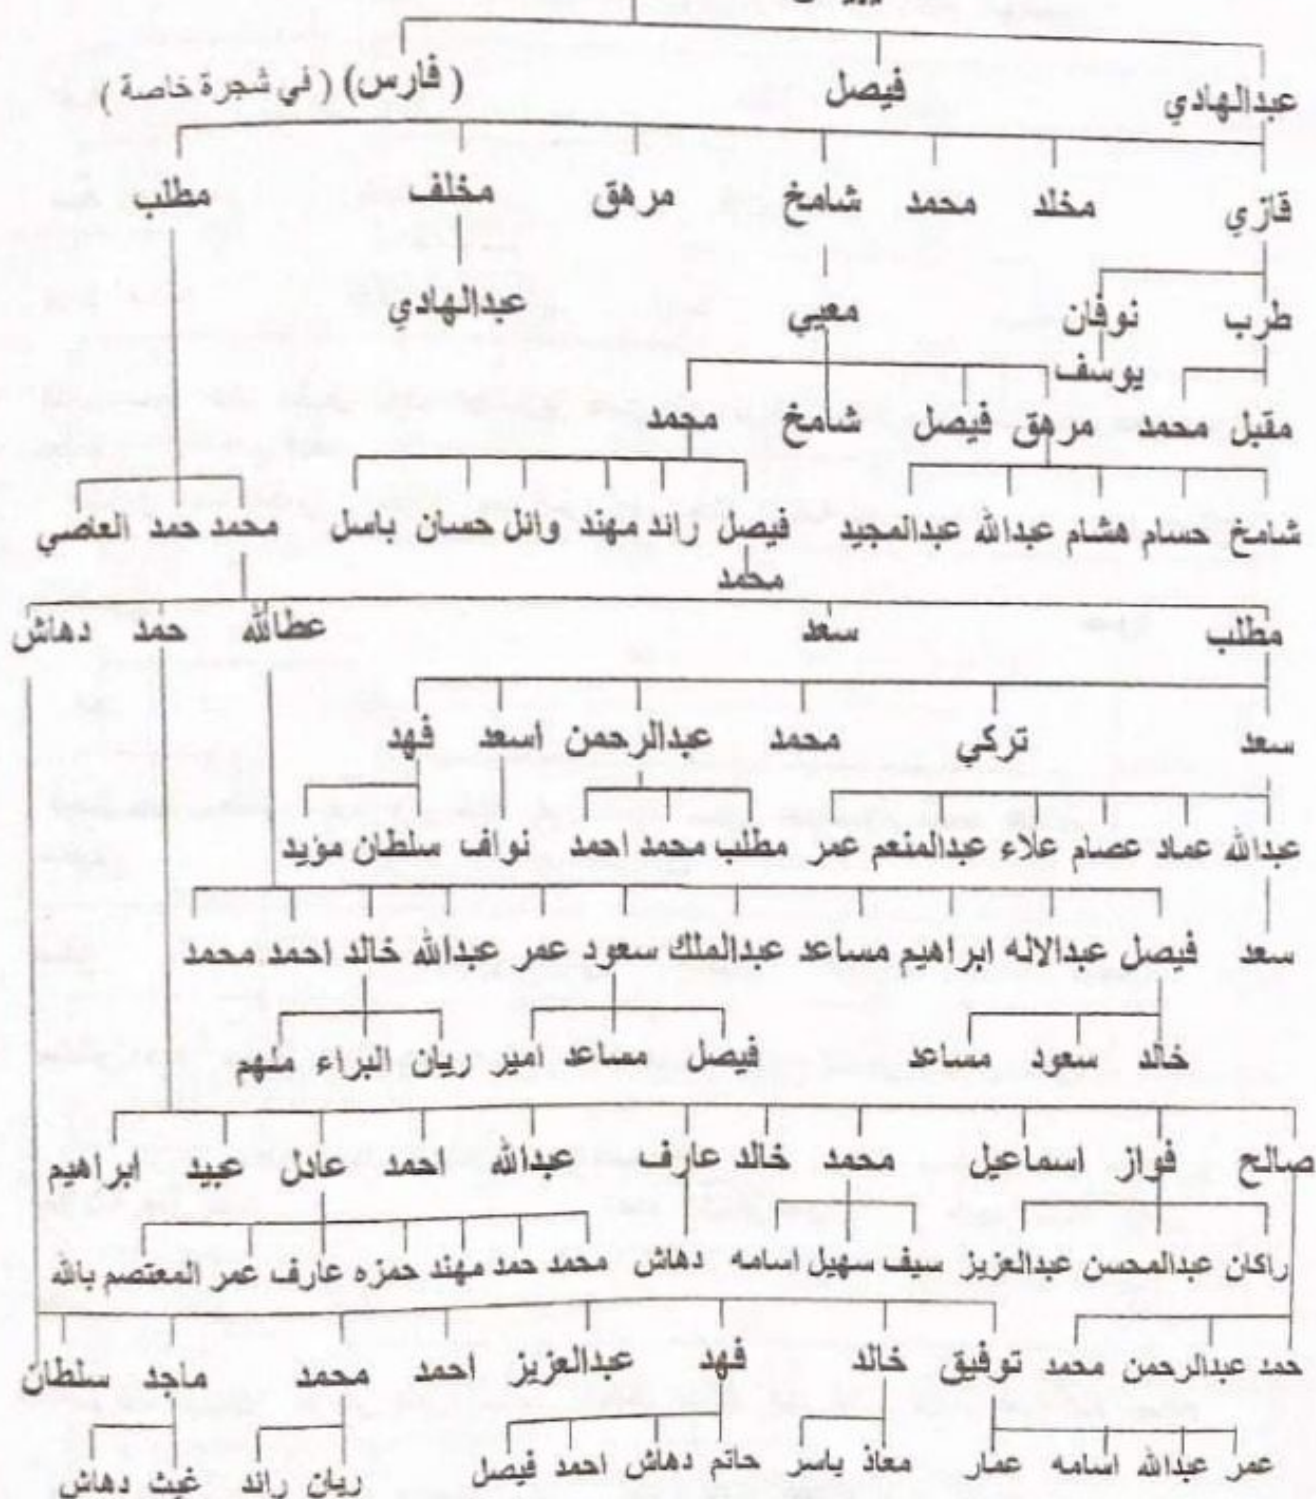 عبدالهادي فيصل (فارس) (في شجرة خاصة)
قازي مخلد محمد شامخ مرهق مخلف مطلب
طرب نوفان معيي عبدالهادي
يوسف
مقبل محمد مرهق فيصل شامخ محمد
شامخ حسام هشام عبدالله عبدالمجيد فيصل رائد مهند وائل حسان باسل محمد حمد العاصي
محمد
مطلب سعد عطالله حمد دهاش
سعد تركي محمد عبدالرحمن اسعد فهد
عبدالله عماد عصام علاء عبدالمنعم عمر مطلب محمد احمد نواف سلطان مؤيد
سعد فيصل عبدالاله ابراهيم مساعد عبدالملك سعود عمر عبدالله خالد احمد محمد
خالد سعود مساعد فيصل مساعد امير ريان البراء ملهم
صالح فواز اسماعيل محمد خالد عارف عبدالله احمد عادل عبيد ابراهيم
راكان عبدالمحسن عبدالعزيز سيف سهيل اسامه دهاش محمد حمد مهند حمزه عارف عمر المعتصم بالله
حمد عبدالرحمن محمد توفيق خالد فهد عبدالعزيز احمد محمد ماجد سلطان
عمر عبدالله اسامه عمار معاذ ياسر حاتم دهاش احمد فيصل ريان رائد غيث دهاش